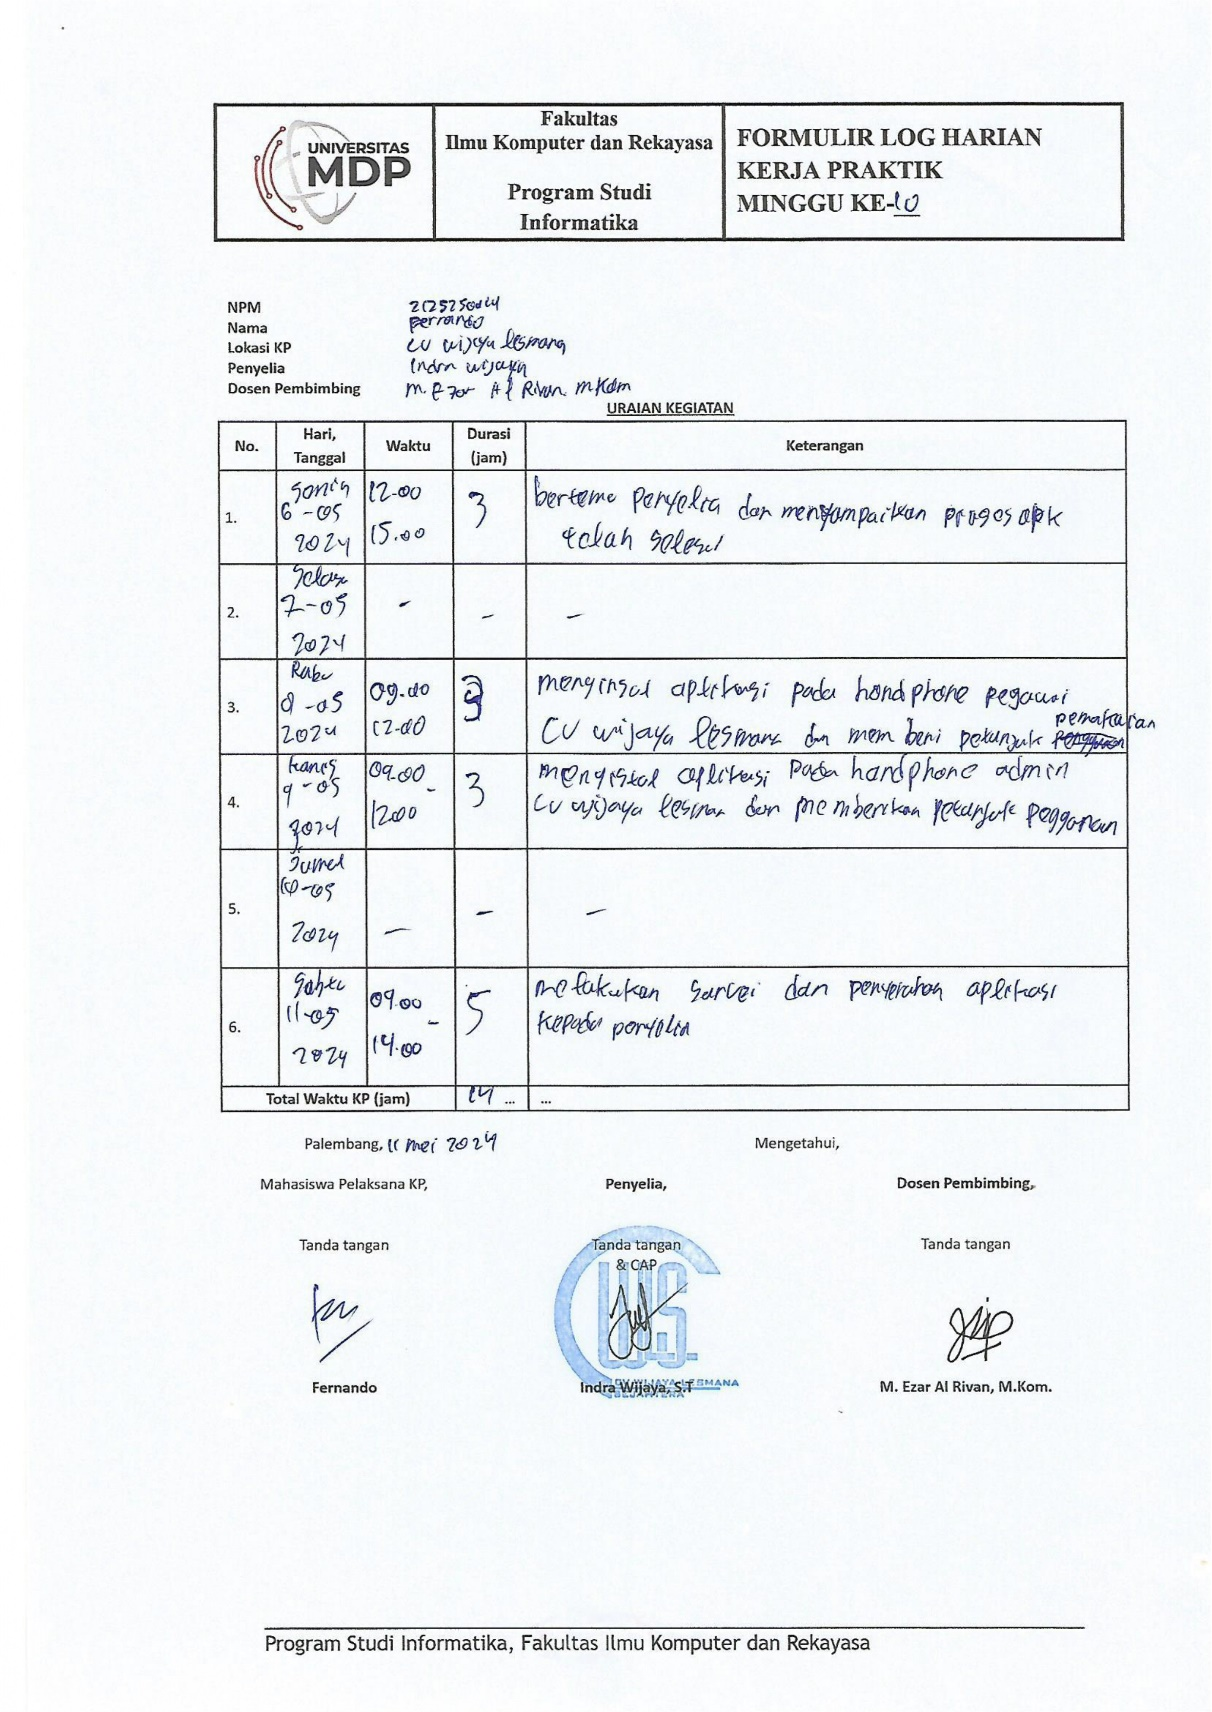 UNIVERSITAS
MDP
Fakultas
Ilmu Komputer dan Rekayasa
Program Studi
Informatika
FORMULIR LOG HARIAN
KERJA PRAKTIK
MINGGU KE-10
NPM
Nama
Lokasi KP CV wijaya lesmana
Penyelia Indra wijaya
Dosen Pembimbing M. Ezar Al Rivan. M.Kom
URAIAN KEGIATAN
No. Hari, Tanggal Waktu Durasi (jam) Keterangan
1. Senin 6-05 2024 12.00 15.00 3 bertemu penyelia dan menyampaikan proges apk
telah selesai
2. Selasa 7-05 2024 - - -
3. Rabu 8-05 2024 09.00 12.00 3 menginsal aplikasi pada handphone pegawai
CV wijaya lesmana dan memberi petunjuk pemakaian
4. kamis 9-05 2024 09.00 - 12.00 3 mengistal aplikasi pada handphone admin
CV wijaya lesman dan memberikan petunjuk
5. Jumat 10-05 2024 - - -
6. Sabtu 11-05 2024 09.00 - 14.00 5 melakukan survei dan penyerahan aplikasi
kepada penyelia
Total Waktu KP (jam) 14 ... ...
Palembang, 11 mei 2024
Mengetahui,
Mahasiswa Pelaksana KP,
Penyelia,
Dosen Pembimbing,
Tanda tangan
Tanda tangan
& CAP
Tanda tangan
Fernando
Indra Wijaya, S.T
M. Ezar Al Rivan, M.Kom.
CV WIJAYA LESMANA
SEJAHTERA
Program Studi Informatika, Fakultas Ilmu Komputer dan Rekayasa